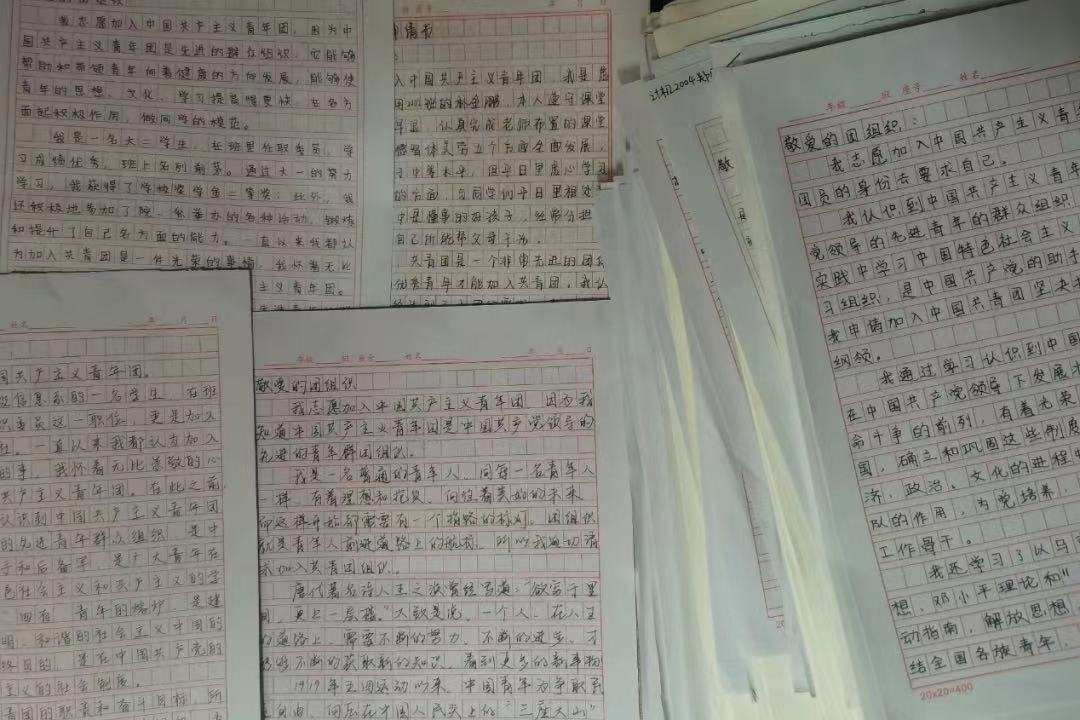 我志愿加入中国共产主义青年团，因为中
国共产主义青年团是先进的群众组织，它能够
帮助和带领青年向着健康的方向发展，能够使
青年的思想、文化、学习提高得更快，在各方
面起积极作用，做同学的模范。
我是一名大二学生，在班里任职委员，学
习成绩优秀，班上名列前茅。通过大一的努力
学习，我获得了学校奖学金二等奖；此外，我
还积极地参加了院、举办的各种活动，锻炼
和提升了自己各方面的能力。一直以来我都认
为加入共青团是一件光荣的事情，我怀着无比
主义青年团。
月 日
申请书
入中国共产主义青年团，我是
本人遵守课堂
认真完成老师布置的课堂
德智体美劳五个方面全面发展，
习中等水平，但平日里虚心学习
的方面，与同学们平日里相处
中是懂事的好孩子，经常分担
自己所能帮父母干活。
共青团是一个非常先进的团
优秀青年才能加入共青团，我认
2004
敬
年级 班 座号 姓名
敬爱的团组织：
我志愿加入中国共产主义青年
团员的身份去要求自己。
我认识到中国共产主义青年
党领导的先进青年的群众组织，
实践中学习中国特色社会主义
习组织，是中国共产党的助手
我申请加入中国共青团坚决
纲领。
我通过学习认识到中国
在中国共产党领导下发展
命斗争的前列，有着光荣
国，确立和巩固这些制度
济、政治、文化的进程中
队的作用，为党培养、
工作骨干。
我还学习了以马
想、邓小平理论和“
动指南，解放思想，
结全国各族青年，
20×20=400
姓名 年 月 日
国共产主义青年团。
信息系的一名学生，在班
委员这一职位，更是加入
一直以来我都认为加入
的事，我怀着无比崇敬的心
共产主义青年团。在此之前
认识到中国共产主义青年团
的先进青年群众组织，是中
手和后备军，是广大青年在
色社会主义和共产主义的学
青年的熔炉，是建
明、和谐的社会主义中国的
终目的，是在中国共产党的
主义的社会制度。
青团的职责和奋斗目标，所
年级 班 座号 姓名 年 月 日
敬爱的团组织
我志愿加入中国共产主义青年团，因为我
知道中国共产主义青年团是中国共产党领导的
先进的青年群团组织。
我是一名普通的青年人，同每一名青年人
一样，有着理想和抱负，向往着美好的未来，
需要有一个指路的标灯。团组织
就是青年人前进道路上的航标，所以我迫切请
求加入共青团组织。
唐代著名诗人王之涣曾经写道：“欲穷千里
目，更上一层楼。”大致是说，一个人，在人生
的道路上，需要不断的努力，不断的进步，才
能够不断的获取新的知识，看到更多的新事物
1919年五四运动以来，中国青年为争取民
主自由，向压在中国人民头上的“三座大山”